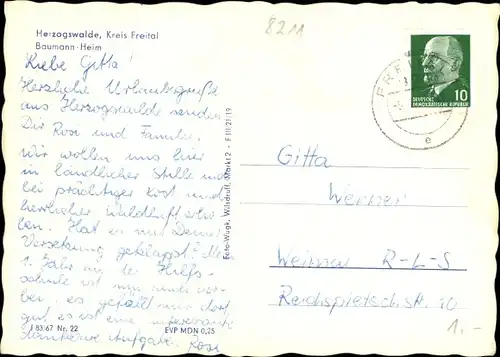 8211
Herzogswalde, Kreis Freital
Baumann-Heim
Liebe Gitta!
Herzliche Urlaubsgrüße
aus Herzogswalde senden
Dir Rosi und Familie.
Wir wollen uns hier
in ländlicher Stille und
bei prächtiger Kost und
herrlicher Waldluft erho-
len. Hat es mit Deiner
Versetzung geklappt?
1. Jahr an der Hilfs-
schule ist nun auch vor-
bei, es gefällt mir dort
gut, es ist eine interessante
dankbare Aufgabe. Rosi
J 83/67 Nr. 22
EVP MDN 0,25
Foto-Wugk, Wilsdruff, Markt 2 - F III/21/19
FREITAL
e
10
DEUTSCHE
DEMOKRATISCHE REPUBLIK
Gitta
Werner
Weimar R-L-S
Reichspietschstr. 10
1.-